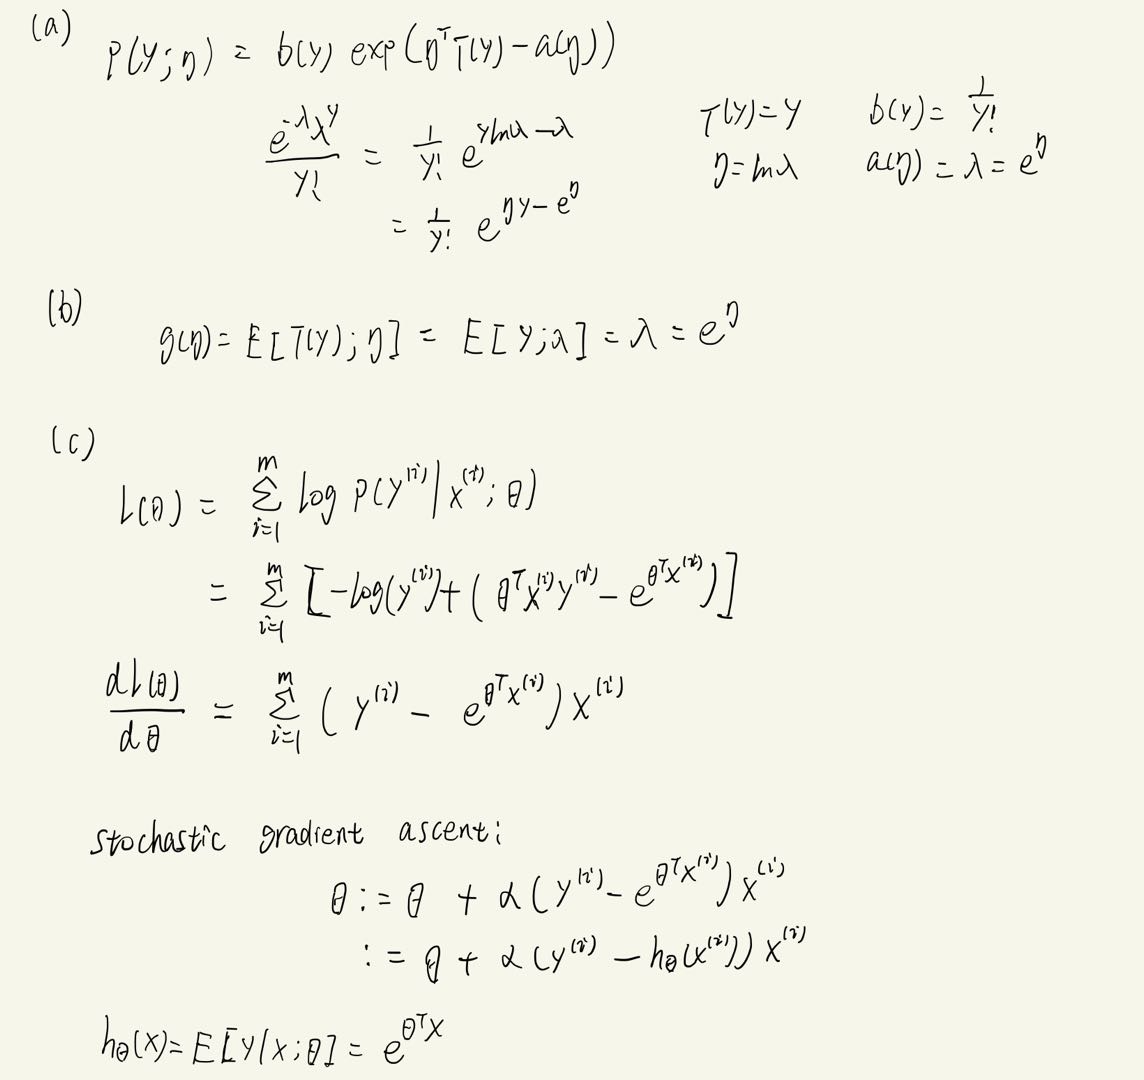 (a) P(y;η) = b(y) exp(η^T T(y) − a(η))
e^{-λ}λ^y / y! = 1/y! e^{y lnλ − λ}    T(y) = y    b(y) = 1/y!
= 1/y! e^{ηy − e^η}    η = lnλ    a(η) = λ = e^η
(b) g(η) = E[T(y);η] = E[y;λ] = λ = e^η
(c)
L(θ) = Σ_{i=1}^{m} log P(y^{(i)}|x^{(i)};θ)
= Σ_{i=1}^{m} [−log(y^{(i)}) + (θ^T x^{(i)} y^{(i)} − e^{θ^T x^{(i)}})]
dL(θ)/dθ = Σ_{i=1}^{m} (y^{(i)} − e^{θ^T x^{(i)}}) x^{(i)}
stochastic gradient ascent:
θ := θ + α(y^{(i)} − e^{θ^T x^{(i)}}) x^{(i)}
:= θ + α(y^{(i)} − h_θ(x^{(i)})) x^{(i)}
h_θ(x) = E[y|x;θ] = e^{θ^T x}